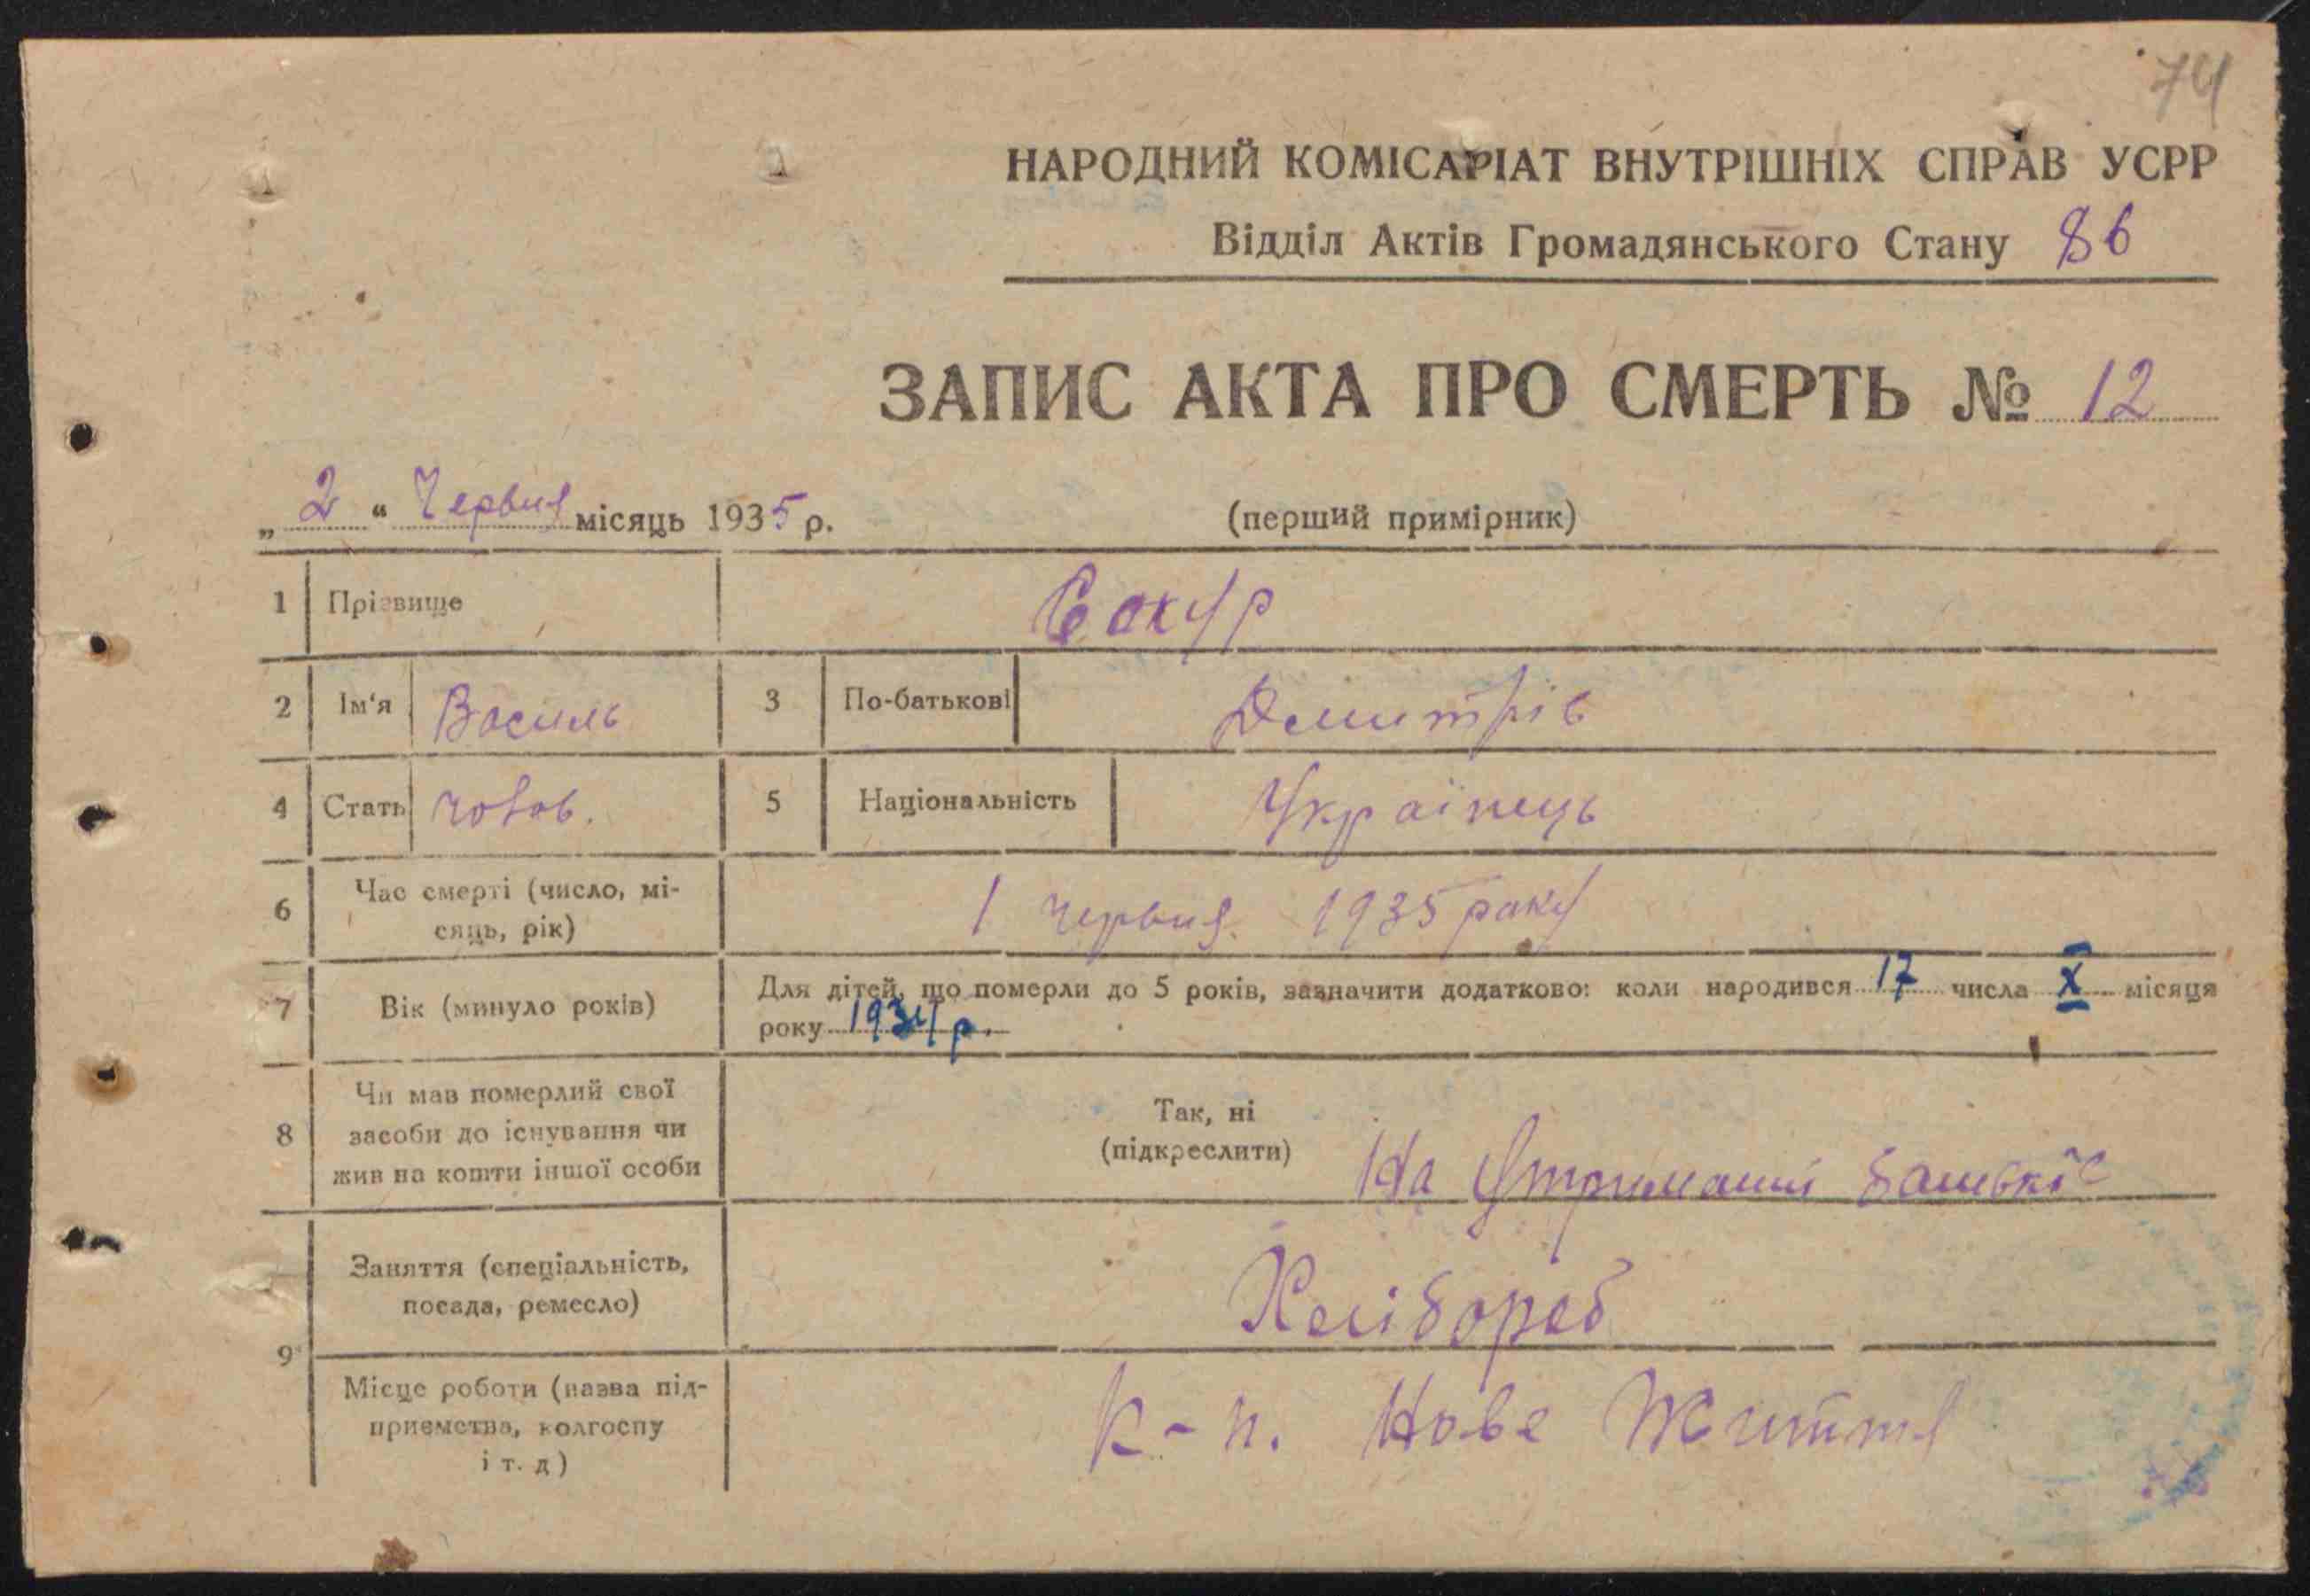 74
НАРОДНИЙ КОМІСАРІАТ ВНУТРІШНІХ СПРАВ УСРР
Відділ Актів Громадянського Стану 86
ЗАПИС АКТА ПРО СМЕРТЬ № 12
„ 2 “ Червня місяць 1935 р. (перший примірник)
1 Прізвище Сокур
2 Ім'я Василь 3 По-батькові Дмитрів
4 Стать чолов. 5 Національність Українець
6 Час смерті (число, мі-
сяць, рік) 1 червня. 1935 року
7 Вік (минуло років) Для дітей, що померли до 5 років, зазначити додатково: коли народився 17 числа X місяця
року 1934 р.
8 Чи мав померлий свої
засоби до існування чи
жив на кошти іншої особи
Так, ні
(підкреслити) На утриманні батьків
9 Заняття (спеціальність,
посада, ремесло) Хлібороб
Місце роботи (назва під-
приємства, колгоспу
і т. д) к-п. Нове Життя